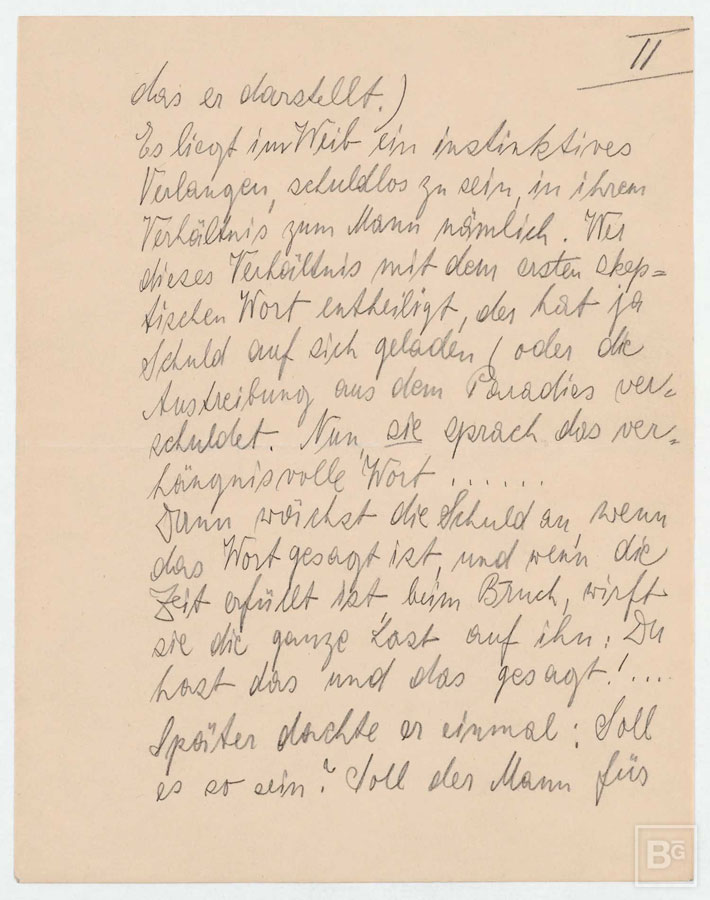 II
das er darstellt.)
Es liegt im Weib ein instinktives
Verlangen, schuldlos zu sein, in ihrem
Verhältnis zum Mann nämlich. Wer
dieses Verhältnis mit dem ersten skep=
tischen Wort entheiligt, der hat ja
Schuld auf sich geladen (oder die
Austreibung aus dem Paradies ver=
schuldet. Nun, sie sprach das ver=
hängnisvolle Wort ......
Dann wächst die Schuld an, wenn
das Wort gesagt ist, und wenn die
Zeit erfüllt ist, beim Bruch, wirft
sie die ganze Last auf ihn: Du
hast das und das gesagt!...
Später dachte er einmal: Soll
es so sein? Soll der Mann für
BG